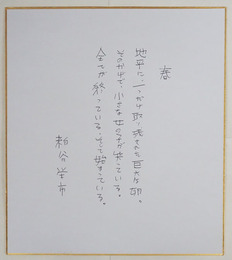 春
地平に、一つだけ取り残された巨大な卵。
そのかげで、小さな女の子が笑っている。
全てが終っている、そして始まっている。
粕谷栄市